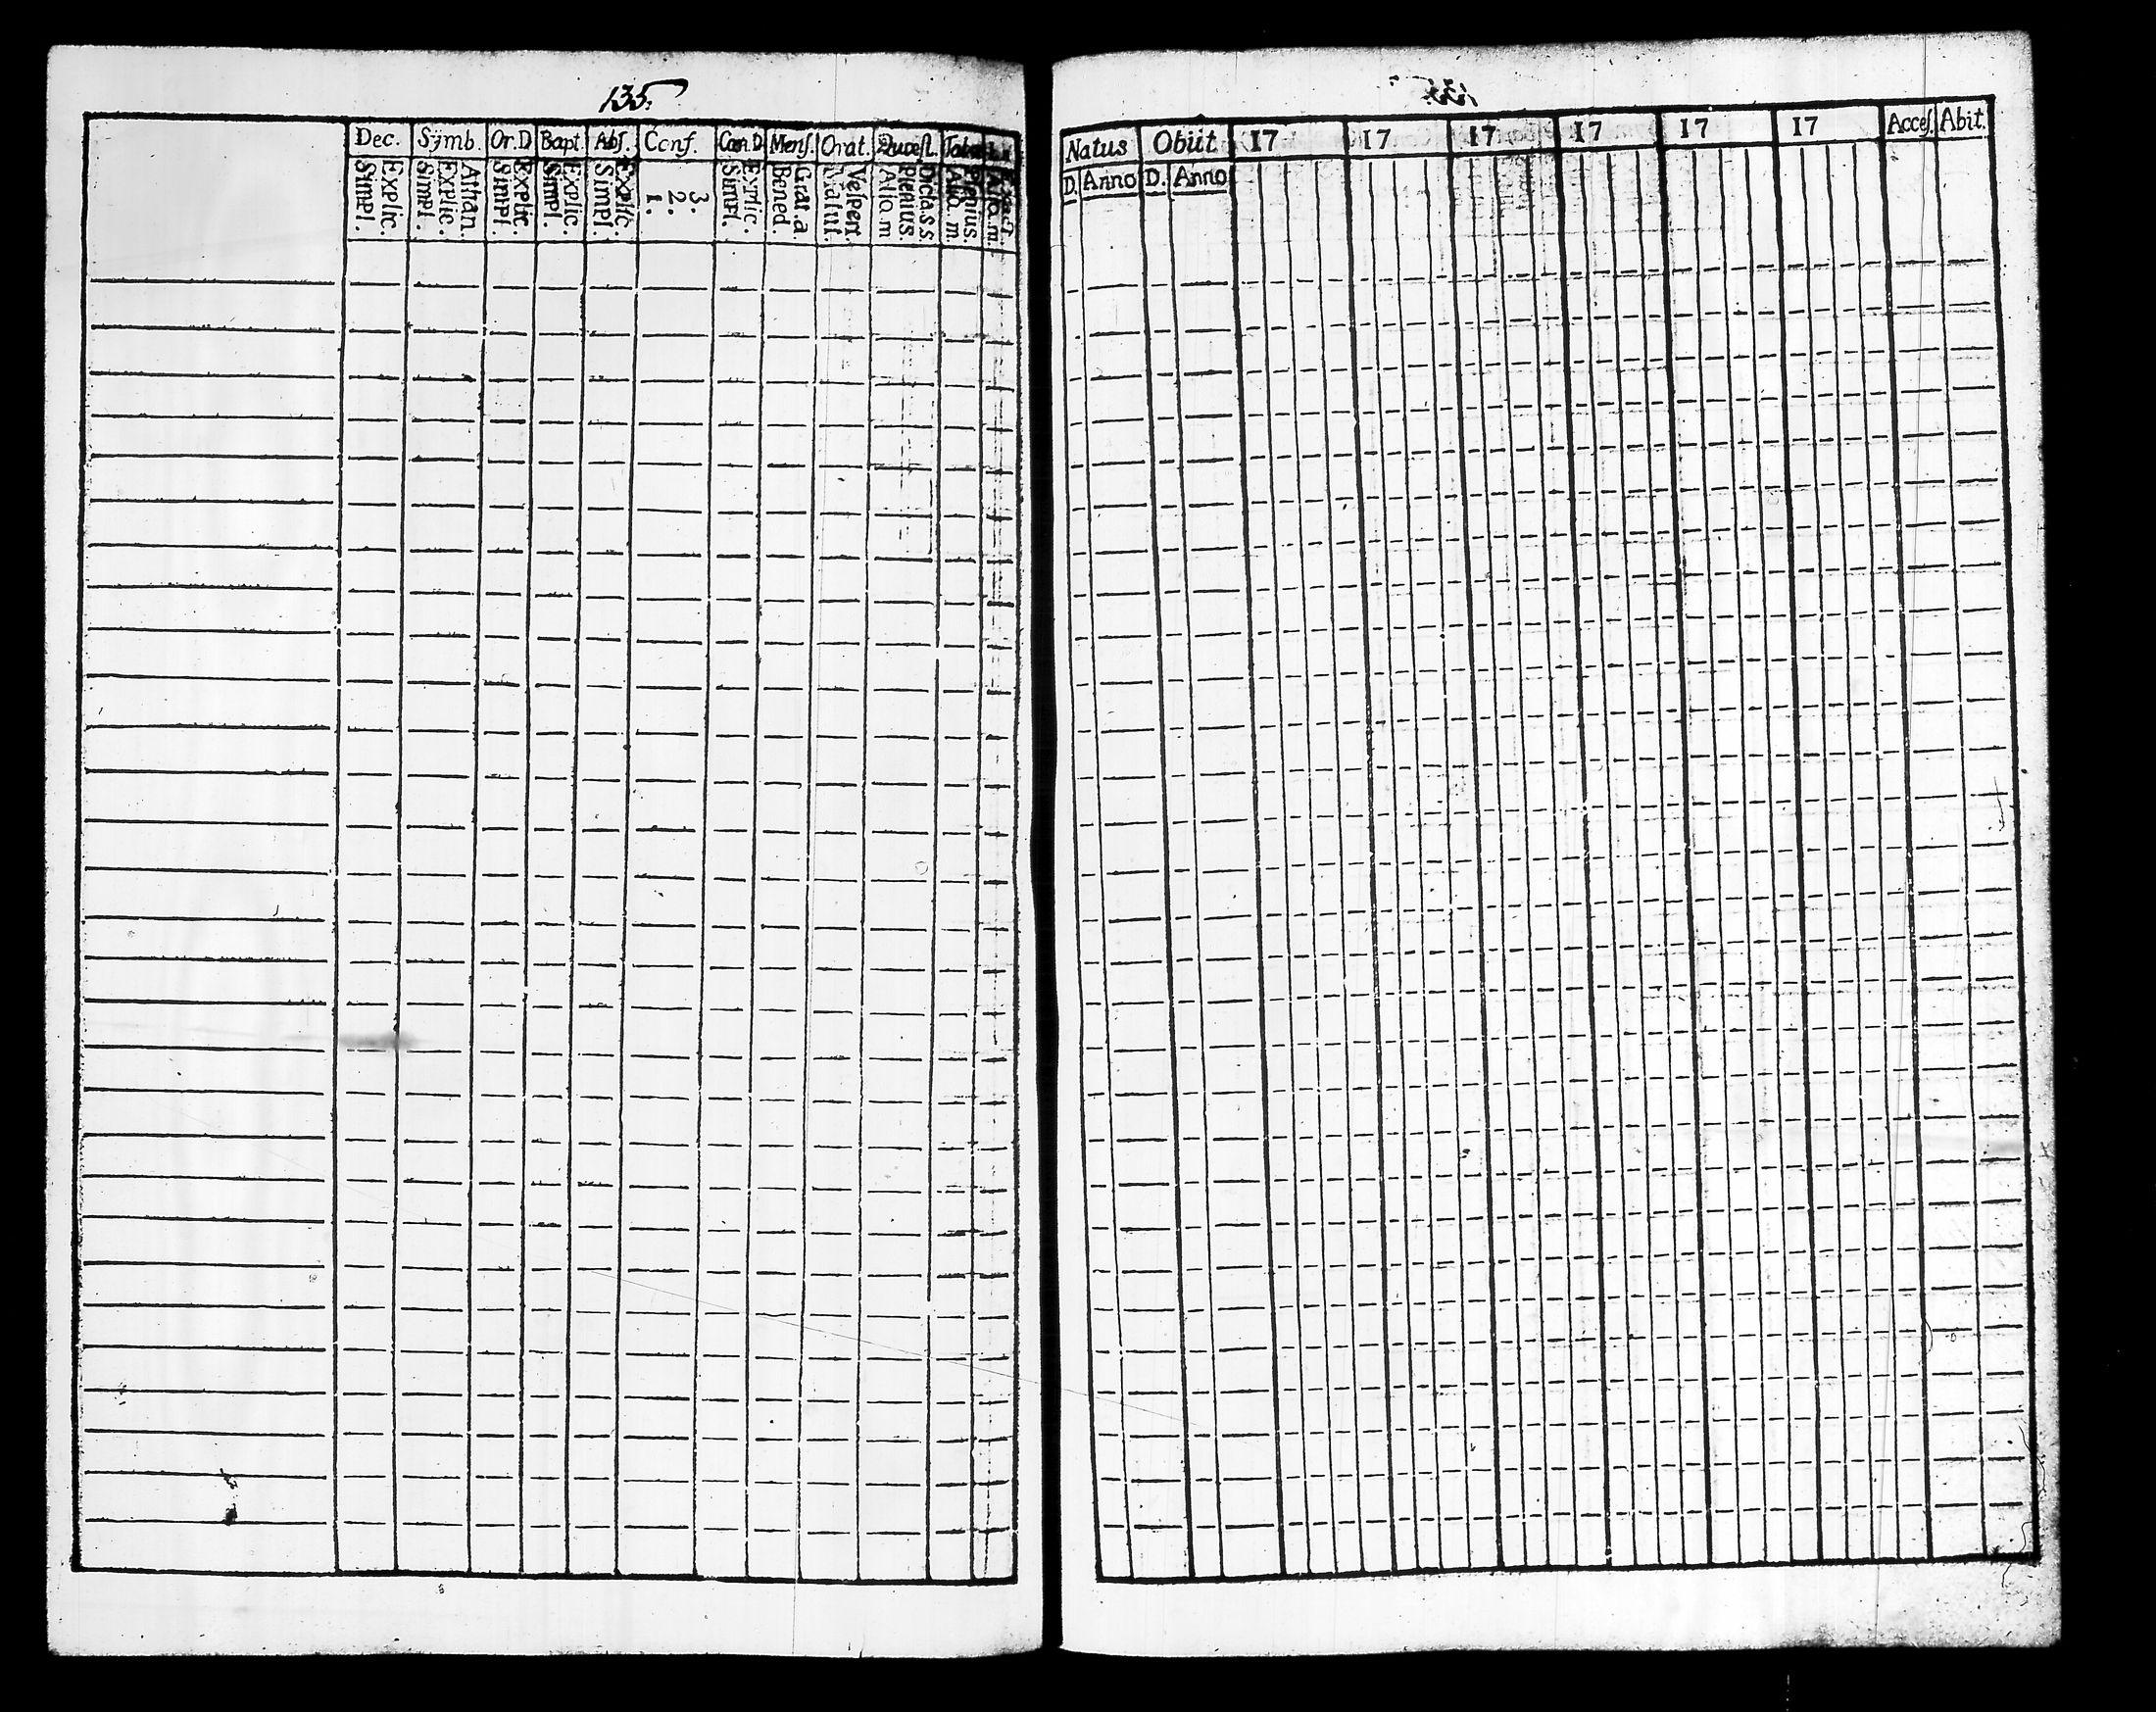 135.
Dec. Sÿmb. Or.D Bapt. Abſ. Conf. Cœn.D Menſ. Orat. Quæſt.
Simpl. Explic. Simpl. Explic. Athan. Simpl. Explic. Simpl. Explic. Simpl. Explic. 1. 2. 3. Simpl. Explic. Bened. Grat.a. Matut. Veſpert. Alio.m Plenius. Dicta.s.s. Alio.m Plenius. Alio.m.
Natus Obiit 17 17 17 17 17 17 Acceſ. Abit.
D. Anno D. Anno